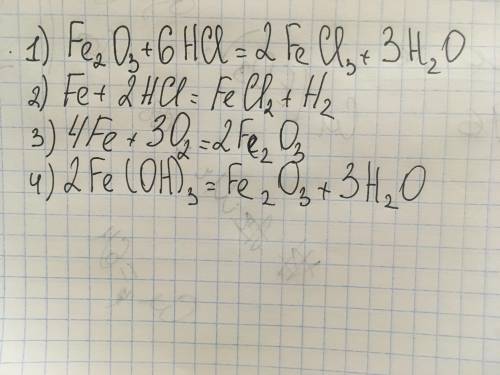 1) Fe₂O₃+6HCl=2FeCl₃+3H₂O
2) Fe+2HCl=FeCl₂+H₂
3) 4Fe+3O₂=2Fe₂O₃
4) 2Fe(OH)₃=Fe₂O₃+3H₂O